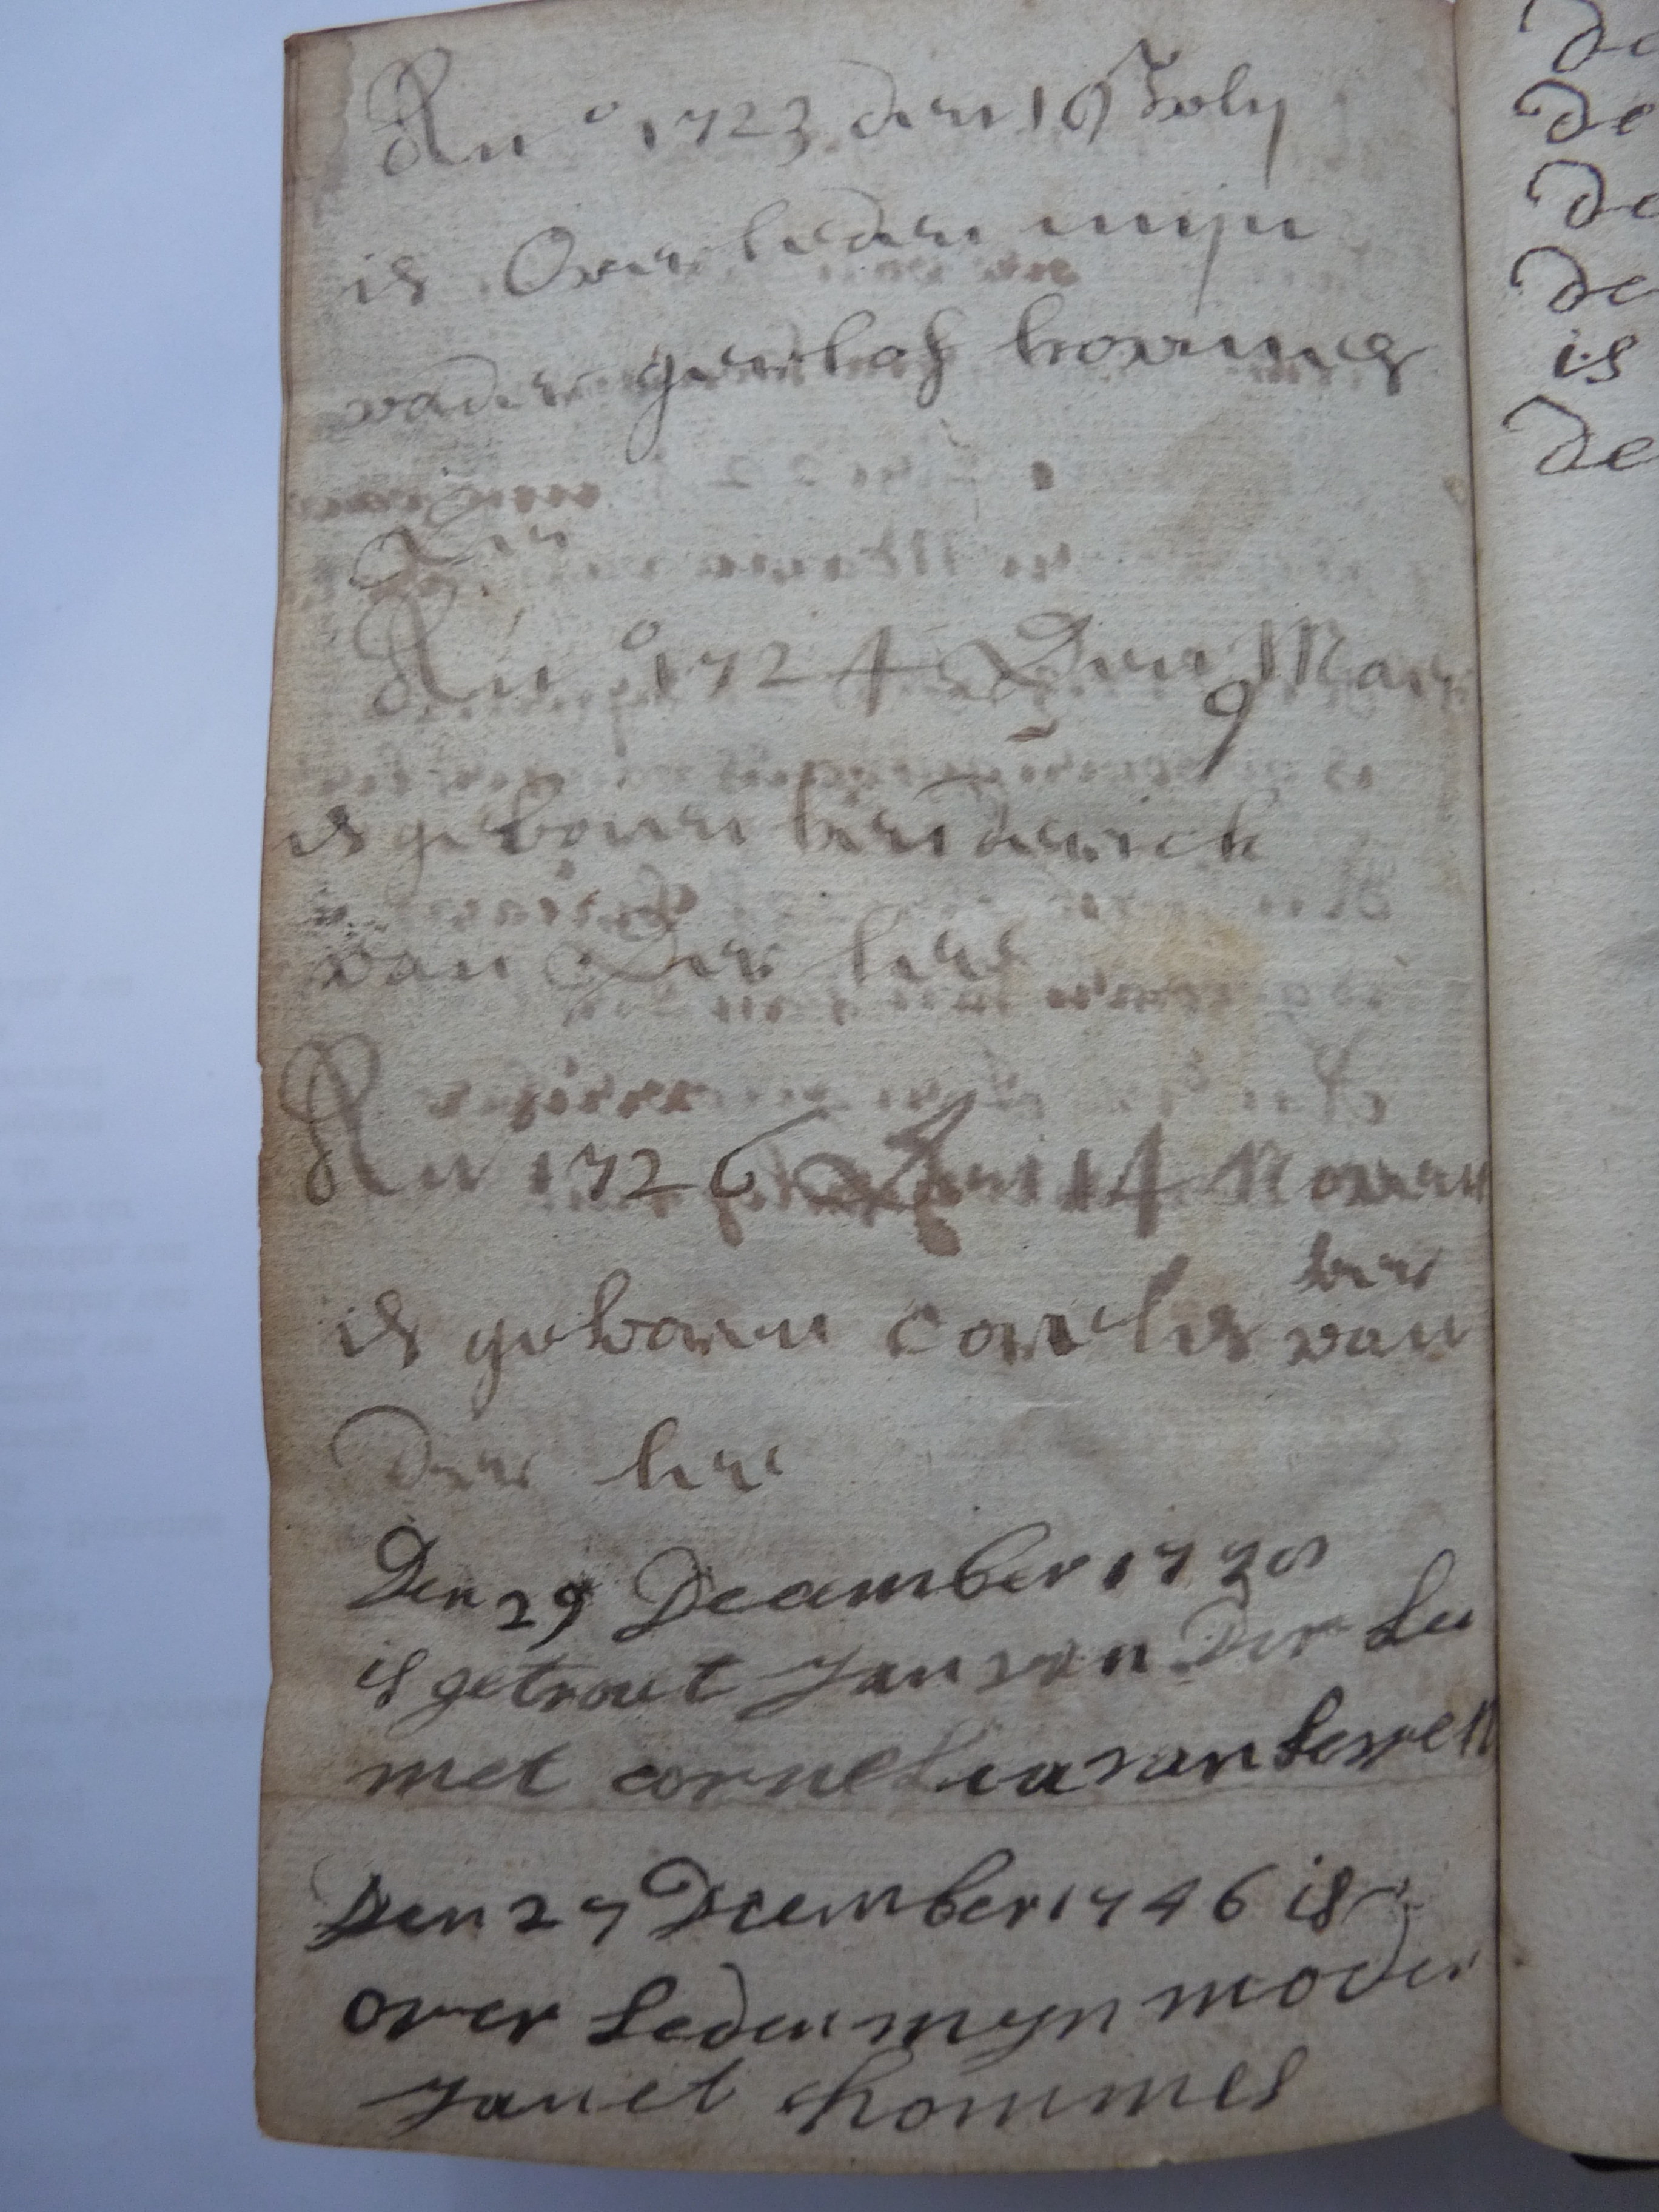 An o 1723 den 16 July
is Over leden mijn
vader gerlof hommes
Den
An o 1724 Den 9 Mart
is geboren henderick
van Der lee
An 1726 Den 14 Novem
ber
is geboren cornelis van
Der lee
Den 29 December 1730
is getrout Jan van Der Lee
met cornelia van
Den 27 December 1746 is
over Leden myn moder
Janet hommes
De
de
De
De
is
De